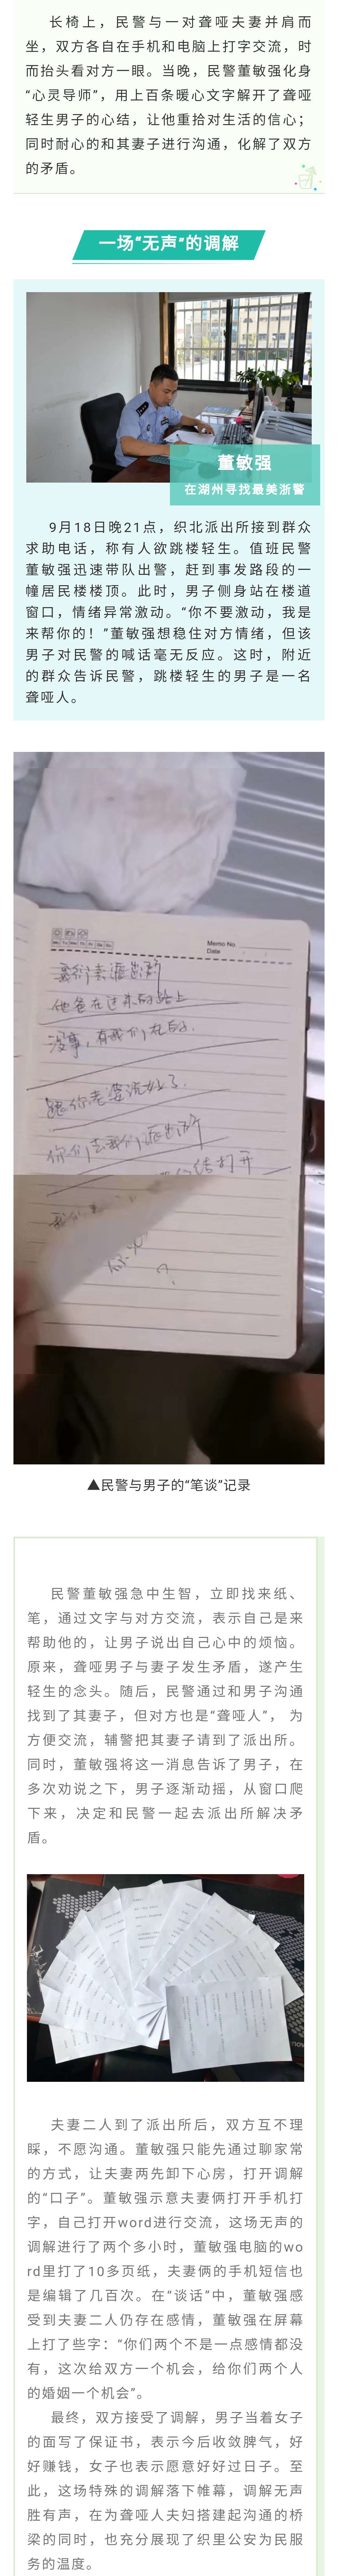 长椅上，民警与一对聋哑夫妻并肩而
坐，双方各自在手机和电脑上打字交流，时
而抬头看对方一眼。当晚，民警董敏强化身
“心灵导师”，用上百条暖心文字解开了聋哑
轻生男子的心结，让他重拾对生活的信心；
同时耐心的和其妻子进行沟通，化解了双方
的矛盾。
一场“无声”的调解
董敏强
在湖州寻找最美浙警
9月18日晚21点，织北派出所接到群众
求助电话，称有人欲跳楼轻生。值班民警
董敏强迅速带队出警，赶到事发路段的一
幢居民楼楼顶。此时，男子侧身站在楼道
窗口，情绪异常激动。“你不要激动，我是
来帮你的！”董敏强想稳住对方情绪，但该
男子对民警的喊话毫无反应。这时，附近
的群众告诉民警，跳楼轻生的男子是一名
聋哑人。
Memo No.
Date
Mo Tu We Th Fr Sa Su
他爸在过来的路上
没事，有我们在的.
跟你老婆说好了.
你们去我们派出所
结打开
？
▲民警与男子的“笔谈”记录
民警董敏强急中生智，立即找来纸、
笔，通过文字与对方交流，表示自己是来
帮助他的，让男子说出自己心中的烦恼。
原来，聋哑男子与妻子发生矛盾，遂产生
轻生的念头。随后，民警通过和男子沟通
找到了其妻子，但对方也是“聋哑人”， 为
方便交流，辅警把其妻子请到了派出所。
同时，董敏强将这一消息告诉了男子，在
多次劝说之下，男子逐渐动摇，从窗口爬
下来，决定和民警一起去派出所解决矛
盾。
夫妻二人到了派出所后，双方互不理
睬，不愿沟通。董敏强只能先通过聊家常
的方式，让夫妻两先卸下心房，打开调解
的“口子”。董敏强示意夫妻俩打开手机打
字，自己打开word进行交流，这场无声的
调解进行了两个多小时，董敏强电脑的wo
rd里打了10多页纸，夫妻俩的手机短信也
是编辑了几百次。在“谈话”中，董敏强感
受到夫妻二人仍存在感情，董敏强在屏幕
上打了些字：“你们两个不是一点感情都没
有，这次给双方一个机会，给你们两个人
的婚姻一个机会”。
最终，双方接受了调解，男子当着女子
的面写了保证书，表示今后收敛脾气，好
好赚钱，女子也表示愿意好好过日子。至
此，这场特殊的调解落下帷幕，调解无声
胜有声，在为聋哑人夫妇搭建起沟通的桥
梁的同时，也充分展现了织里公安为民服
务的温度。